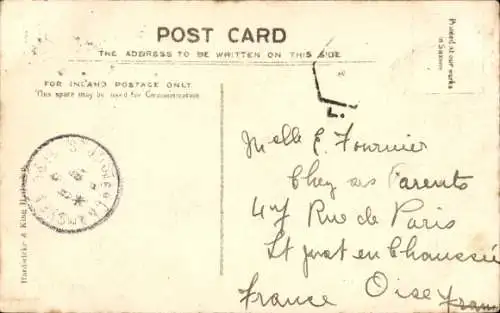 POST CARD
THE ADDRESS TO BE WRITTEN ON THIS SIDE
Printed at our works
in Saxony
FOR INLAND POSTAGE ONLY
This space may be used for Communication
Melle E. Fournier
Chez ses Parents
47 Rue de Paris
St Just en Chaussée
France Oise France